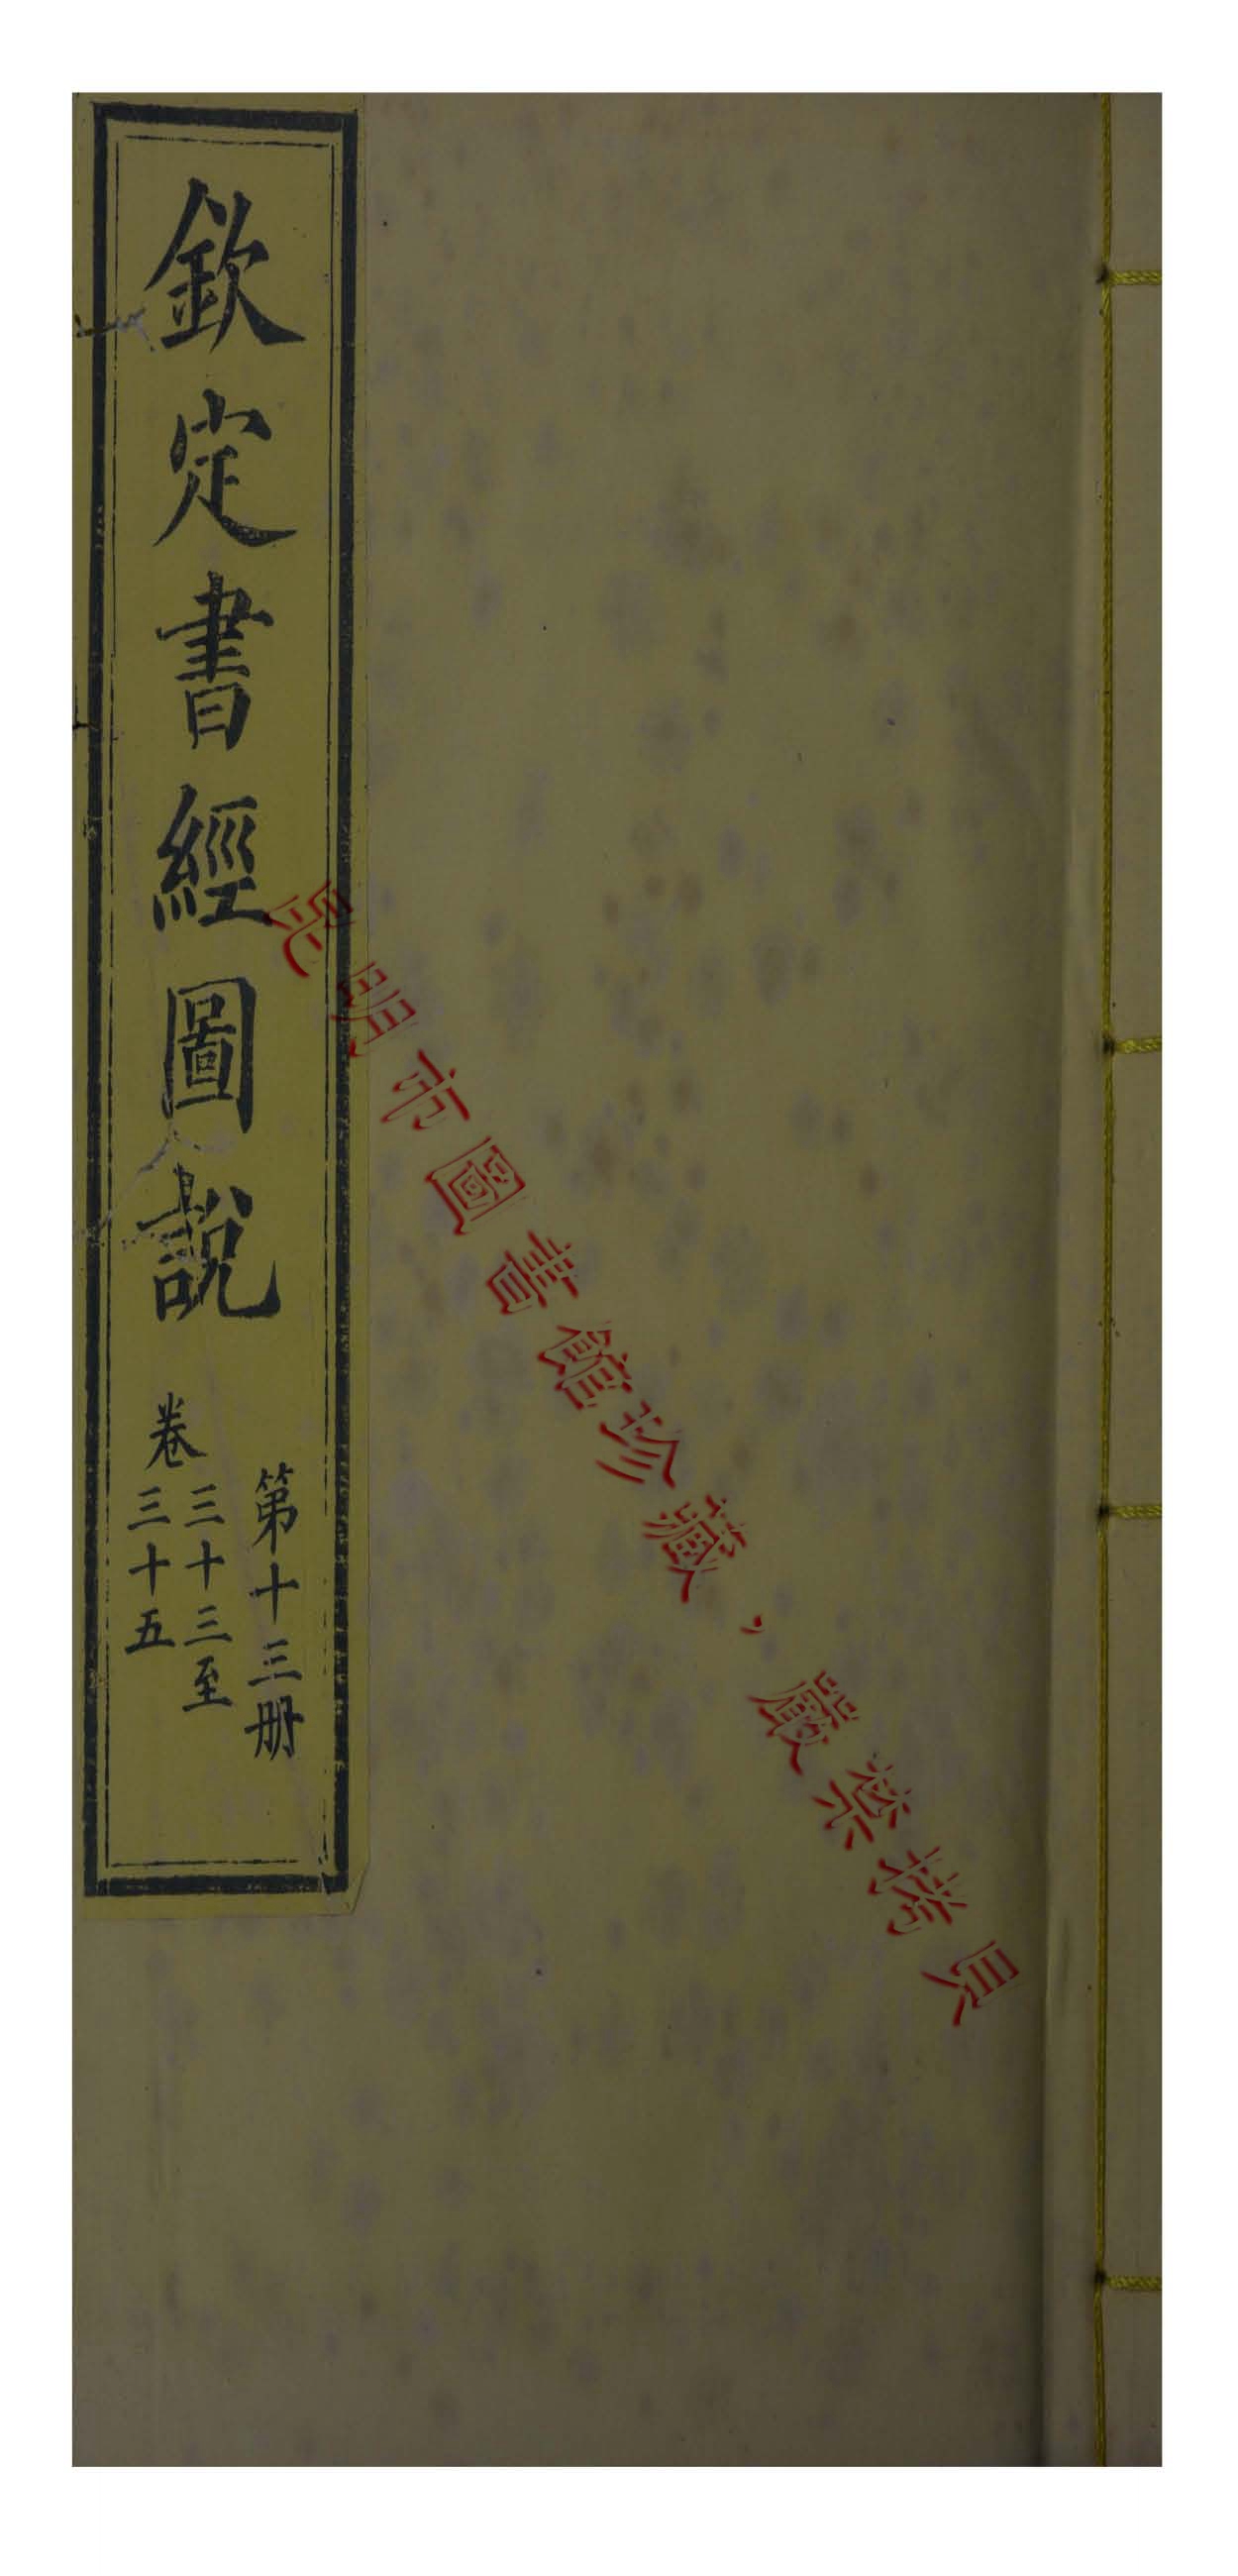 欽定書經圖說
第十三册
卷三十三至
三十五
昆明市圖書館珍藏，嚴禁拷貝